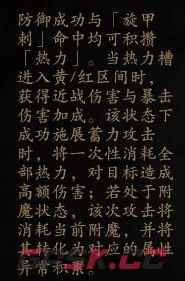 防御成功与「旋甲
刺」命中均可积攒
「热力」。当热力槽
进入黄/红区间时，
获得近战伤害与暴击
伤害加成。该状态下
成功施展蓄力攻击
时，将一次性消耗全
部热力，对目标造成
高额伤害；若处于附
魔状态，该次攻击将
消耗当前附魔，并将
其转化为对应的属性
异常积累。